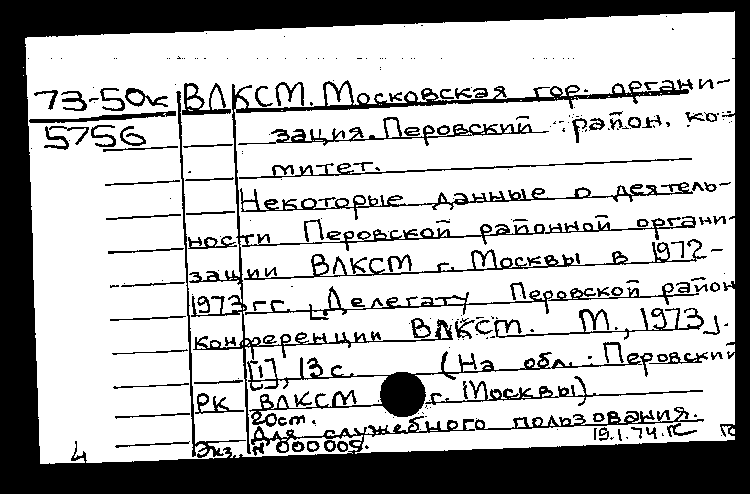 73-50к ВЛКСМ. Московская гор. органи-
5756 зация. Перовский район. ко-
митет.
Некоторые данные о деятель-
ности Перовской районной органи-
зации ВЛКСМ г. Москвы в 1972-
1973 гг. [Делегату Перовской район
конференции ВЛКСМ. М., 1973].
[1], 13 с. (На обл.: Перовский
РК ВЛКСМ г. Москвы).
20см.
Для служебного пользования.
4 Экз. № 000005. 19.1.74.